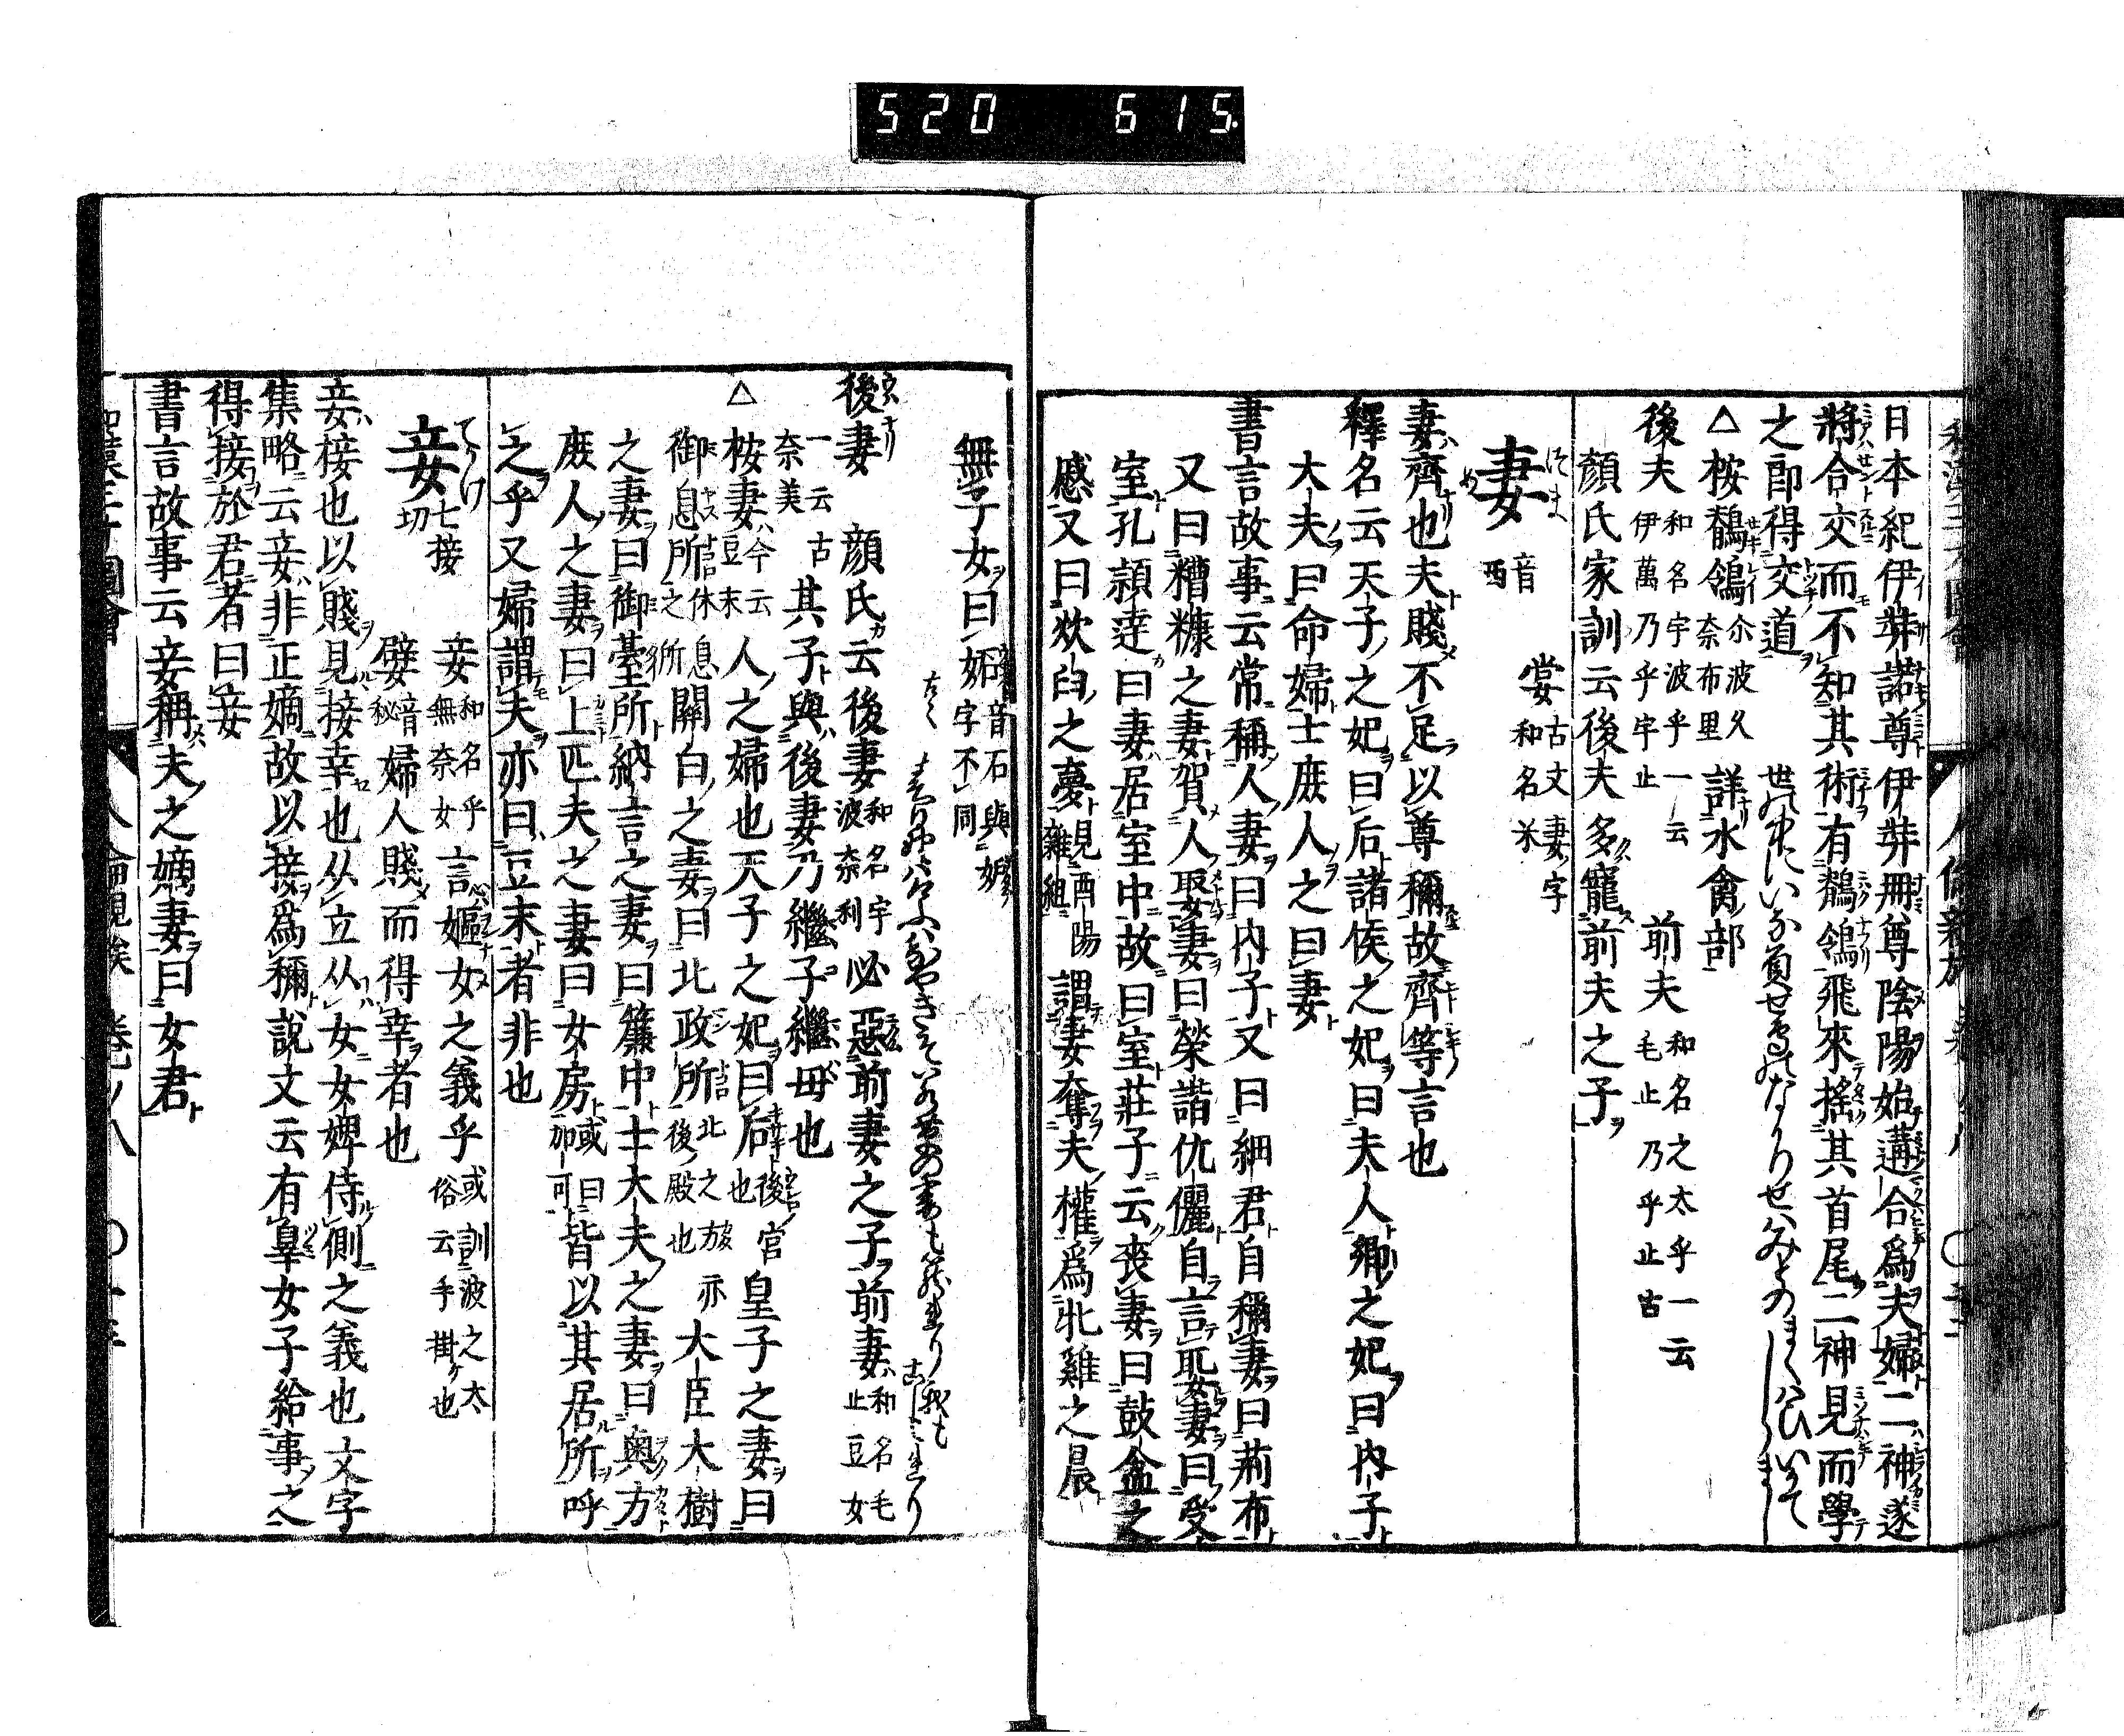 520 615.
日本紀伊弉諾尊伊弉冊尊陰陽始遘合爲夫婦二神遂
將合交而不知其術有鶺鴒飛來搖其首尾二神見而學
之卽得交道
△桉鶺鴒 尓波久奈布里 詳水禽部
後夫 和名宇波乎一云伊萬乃乎宇止 前夫 和名之太乎一云毛止乃乎止古
顏氏家訓云後夫多寵前夫之子
妻 つま め 音西 𡜈 古文妻字 和名米
妻齊也夫賤不足以尊稱故齊等言也
釋名云天子之妃曰后諸侯之妃曰夫人卿之妃曰内子
大夫曰命婦士庶人之曰妻
書言故事云常稱人妻曰内子又曰細君自稱妻曰荊布
又曰糟糠之妻賀人娶妻曰榮諧伉儷自言取妻曰受
室孔穎達曰妻居室中故曰室莊子云喪妻曰鼓盆之
慼又曰炊臼之夢 見酉陽雜組 謂妻奪夫權爲牝雞之晨
無子女曰妬 音石與妬字不同
後妻 顏氏云後妻 和名宇波奈利 必惡前妻之子前妻 和名毛止豆女
一云古奈美 其子與後妻乃繼子繼母也
△桉妻 今云豆末 人之婦也天子之妃曰后 後也 後宮 皇子之妻曰
御息所 休息之所 關白之妻曰北政所 北之方後殿也 亦大臣大樹
之妻曰御臺所納言之妻曰簾中士大夫之妻曰奧方
庶人之妻曰上匹夫之妻曰女房 或曰加可 皆以其居所呼
之乎又婦謂夫亦曰豆末者非也
妾 てかけ 七接切 妾 和名乎無奈女 言嫗女之義乎 或訓波之太俗云手掛也
嬖 音秘 婦人賤而得幸者也
妾接也以賤見接幸也从立从女女婢侍側之義也文字
集略云妾非正嫡故以接爲稱說文云有辠女子給事之
得接於君者曰妾
書言故事云妾稱夫之嫡妻曰女君